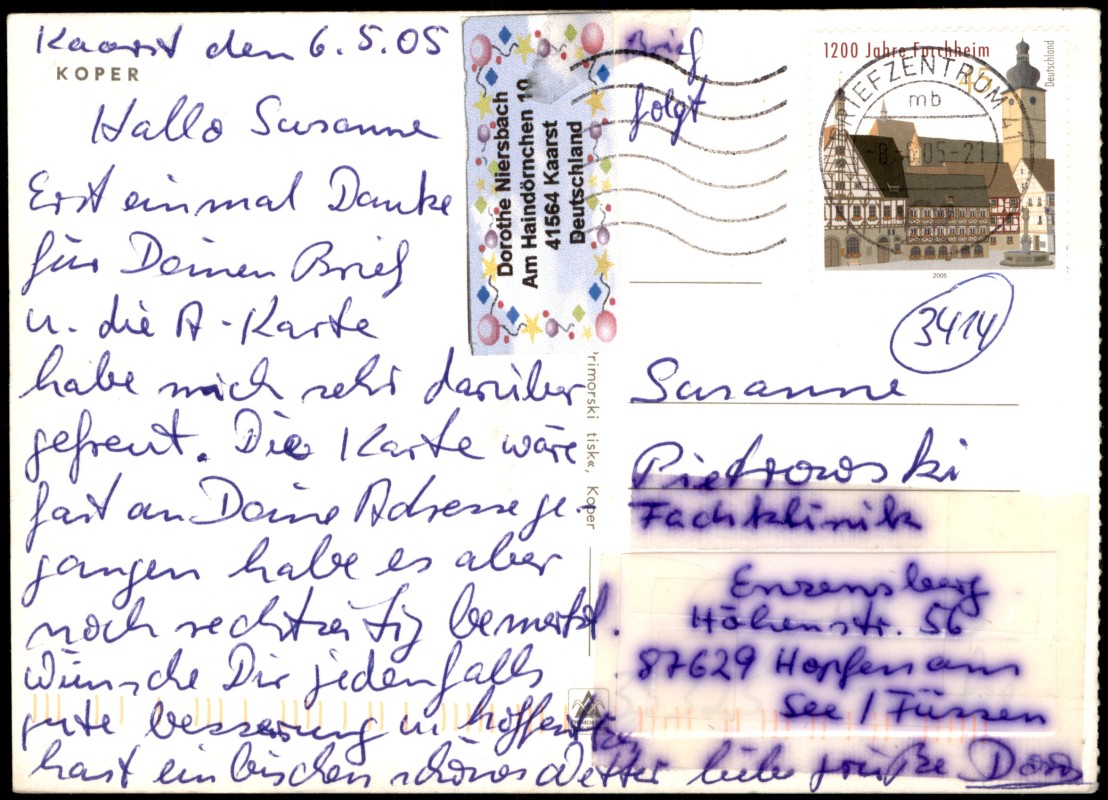 Kaarst den 6.5.05
KOPER
Hallo Susanne
Erst einmal Danke
für Deinen Brief
u. die A-Karte
habe mich sehr darüber
gefreut. Die Karte wäre
fast an Deine Adresse ge-
gangen habe es aber
noch rechtzeitig bemerkt.
Wünsche Dir jedenfalls
gute besserung u. hoffe
hast ein bischen schönes Wetter liebe grüße Doro
Dorothe Niersbach
Am Haindörnchen 10
41564 Kaarst
Deutschland
Brief
folgt
1200 Jahre Forchheim
Deutschland
BRIEFZENTRUM
mb
2005
3414
rimorski tisk«, Koper
Susanne
Pietrowski
Fachklinik
Enzensberg
Höhenstr. 56
87629 Hopfen am
See / Füssen